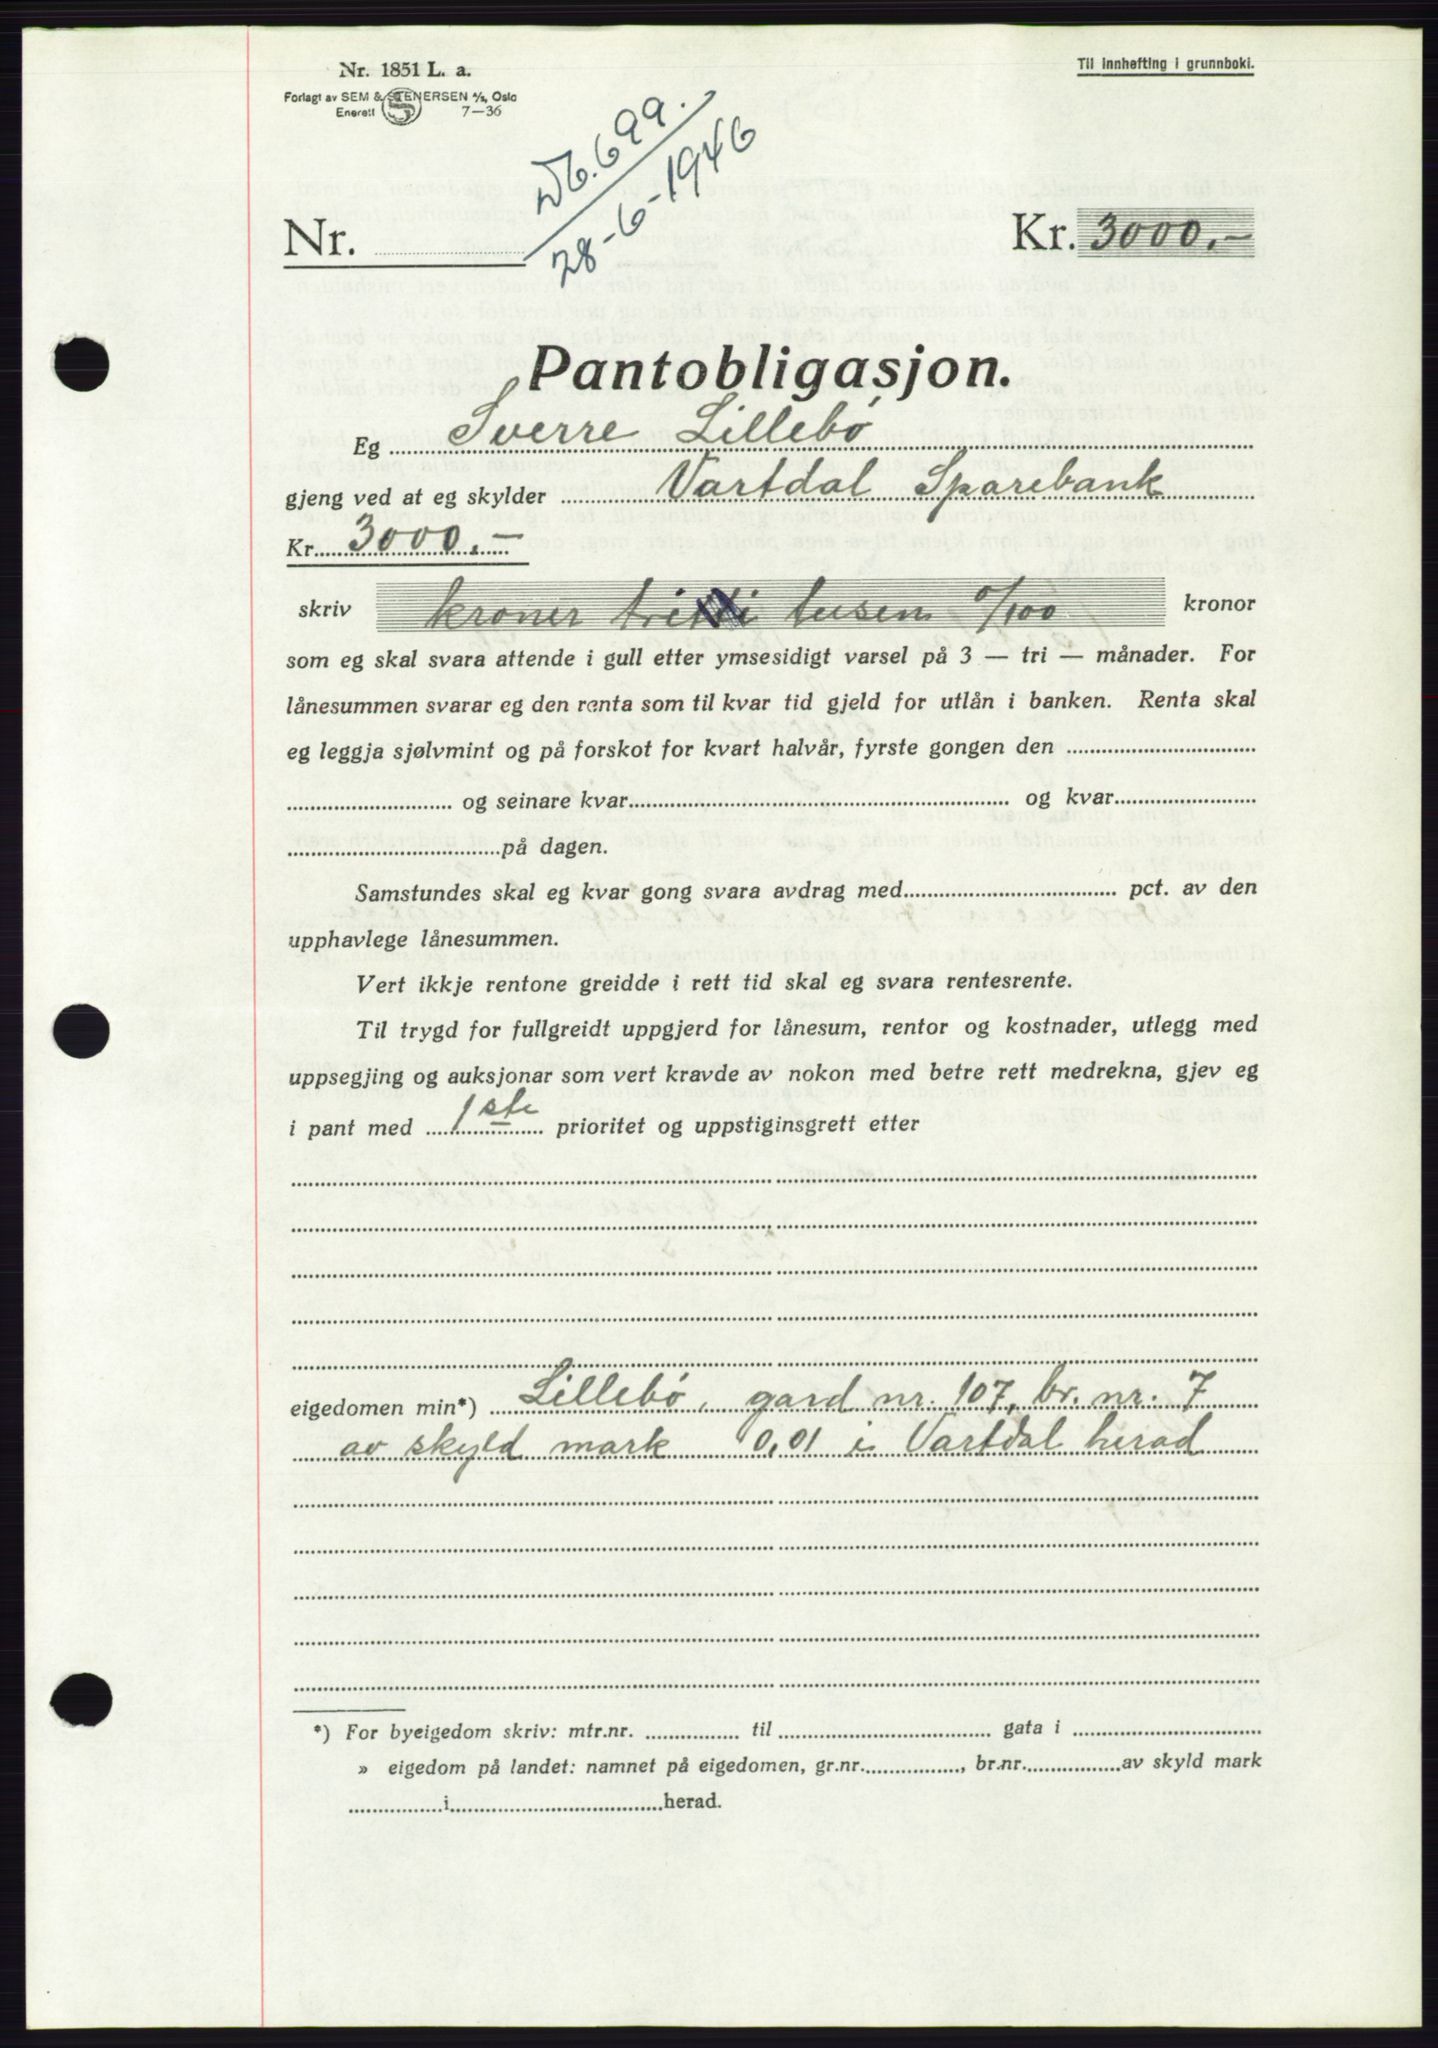 Nr. 1851 L. a.
Til innhefting i grunnboki.
Forlagt av SEM & STENERSEN A/S, Oslo
Enerett 7—36
699.
28-6-1946
Nr.
Kr. 3000.-
Pantobligasjon.
Eg Sverre Lillebö
gjeng ved at eg skylder Vartdal Sparebank
Kr. 3000.-
skriv kroner tusen 0/100 kronor
som eg skal svara attende i gull etter ymsesidigt varsel på 3 — tri — månader. For
lånesummen svarar eg den renta som til kvar tid gjeld for utlån i banken. Renta skal
eg leggja sjølvmint og på forskot for kvart halvår, fyrste gongen den
og seinare kvar og kvar
på dagen.
Samstundes skal eg kvar gong svara avdrag med pct. av den
upphavlege lånesummen.
Vert ikkje rentone greidde i rett tid skal eg svara rentesrente.
Til trygd for fullgreidt uppgjerd for lånesum, rentor og kostnader, utlegg med
uppsegjing og auksjonar som vert kravde av nokon med betre rett medrekna, gjev eg
i pant med 1ste prioritet og uppstiginsgrett etter
eigedomen min*) Lillebö, gard nr. 107, br. nr. 7
av skyld mark 0,01 i Vartdal herad
*) For byeigedom skriv: mtr.nr. til gata i
» eigedom på landet: namnet på eigedomen, gr.nr. , br.nr. av skyld mark
i herad.